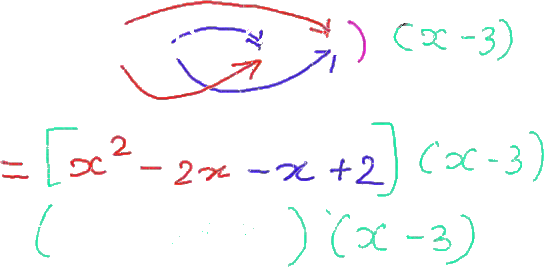 ) (x - 3)
= [x² - 2x - x + 2] (x - 3)
( ) (x - 3)